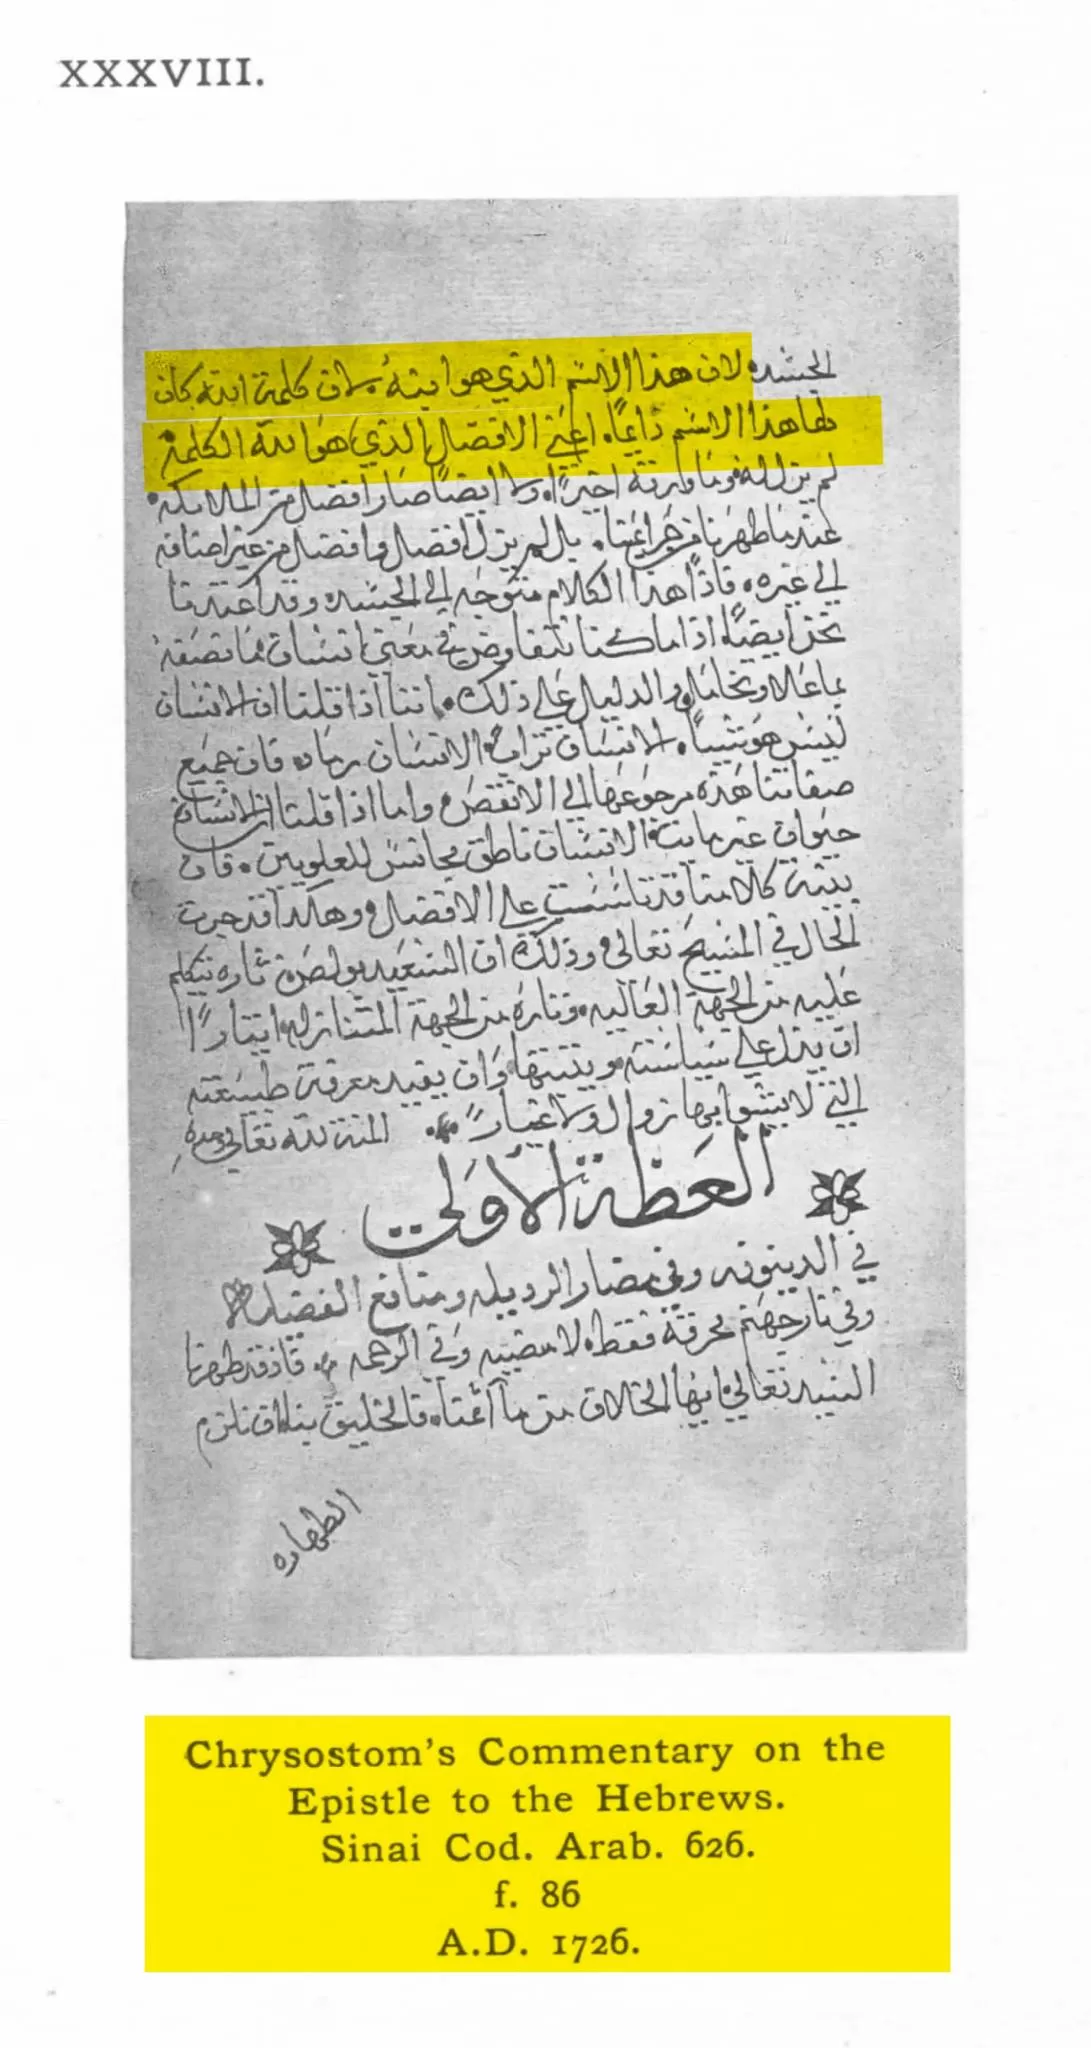 XXXVIII.
الجسد لان هذا الاسم الذي هو ابنهُ لان كلمة الله كان
لها هذا الاسم دايمًا اعني الافضل الذي هو الله الكلمة
لم يزل له وما ورثه اخيرًا ولا ايضًا صار افضل من الملايكه
عندما طهرنا من جرايمنا بل لم يزل افضل وافضل من غير اضافه
الي غيره فاذًا هذا الكلام متوجه الي الجسد وقد اعتدنا
نحن ايضًا اذا ما كنا نتفاوض في معني انسان ما نصفه
بما علا وتخامل والدليل علي ذلك اننا اذا قلنا ان الانسان
ليس هو شيًا الانسان تراب الانسان رماد فان جميع
صفاتنا هذه مرجوعها الي الانقص واما اذا قلنا ان الانسان
حيوان غير مايت الانسان ناطق مجانس للعلويين فان
بينة كلامنا قد تاسست علي الافضل وهكذا قد جرت
الحال في المسيح تعالي وذلك ان السعيد بولص تاره يتكلم
عليه من الجهة العاليه وتارة من الجهة المتنازله ايثارًا
ان ينزل علي سياسته ويثبتها وان يفيد معرفة طبيعته
التي لا يشوابها زوال ولا غيارًا المنة لله تعالي وحده
العظة الاولي
في الدينونه وفي مضار الرديله ومنافع الفضيله
وفي نار جهنم محرقة فقط لا مضييه وفي الرحمه فاذ قد طهرنا
السيد تعالي ايها الخلان من ماآثمنا فالخليق بنا ان نلزم
الطهاره
Chrysostom's Commentary on the
Epistle to the Hebrews.
Sinai Cod. Arab. 626.
f. 86
A.D. 1726.